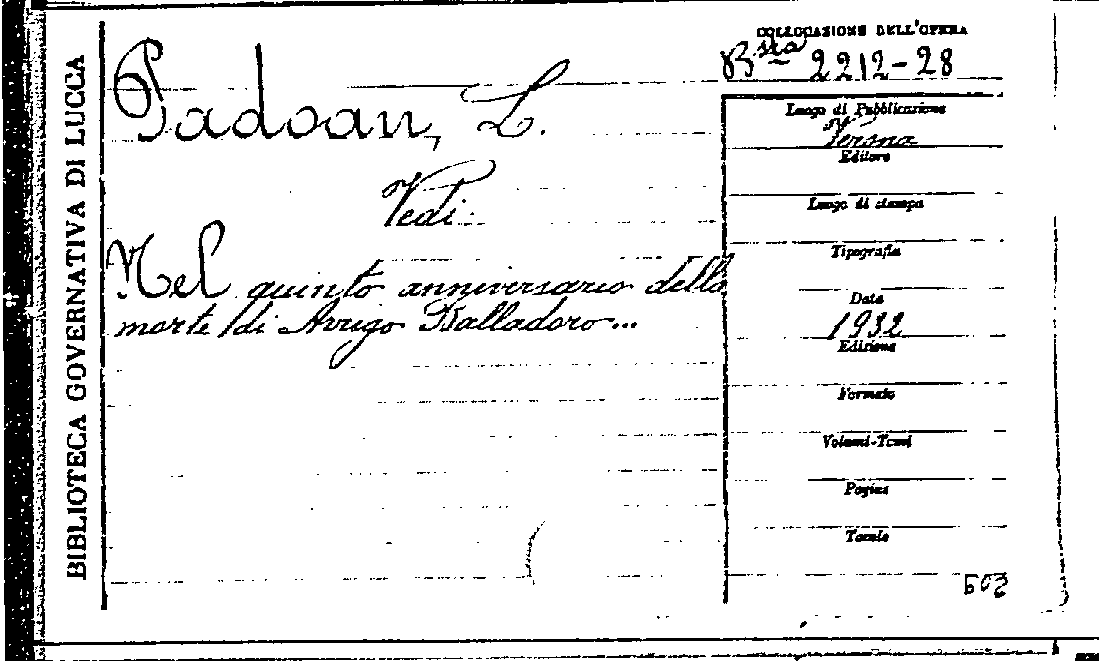 BIBLIOTECA GOVERNATIVA DI LUCCA
COLLOCAZIONE DELL'OPERA
Bsta 2212-28
Padoan, L.
Vedi:
Nel quinto anniversario della
morte di Arrigo Balladoro...
Luogo di Pubblicazione
Verona
Editore
Luogo di stampa
Tipografia
Data
1932
Edizione
Formato
Volumi-Tomi
Pagine
Tavole
503